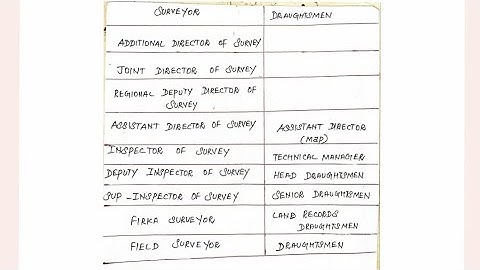 SURVEYOR DRAUGHTSMEN
ADDITIONAL DIRECTOR OF SURVEY
JOINT DIRECTOR OF SURVEY
REGIONAL DEPUTY DIRECTOR OF
SURVEY
ASSISTANT DIRECTOR OF SURVEY ASSISTANT DIRECTOR
(MAP)
INSPECTOR OF SURVEY TECHNICAL MANAGER
DEPUTY INSPECTOR OF SURVEY HEAD DRAUGHTSMEN
SUP-INSPECTOR OF SURVEY SENIOR DRAUGHTSMEN
FIRKA SURVEYOR LAND RECORDS
DRAUGHTSMEN
FIELD SURVEYOR DRAUGHTSMEN